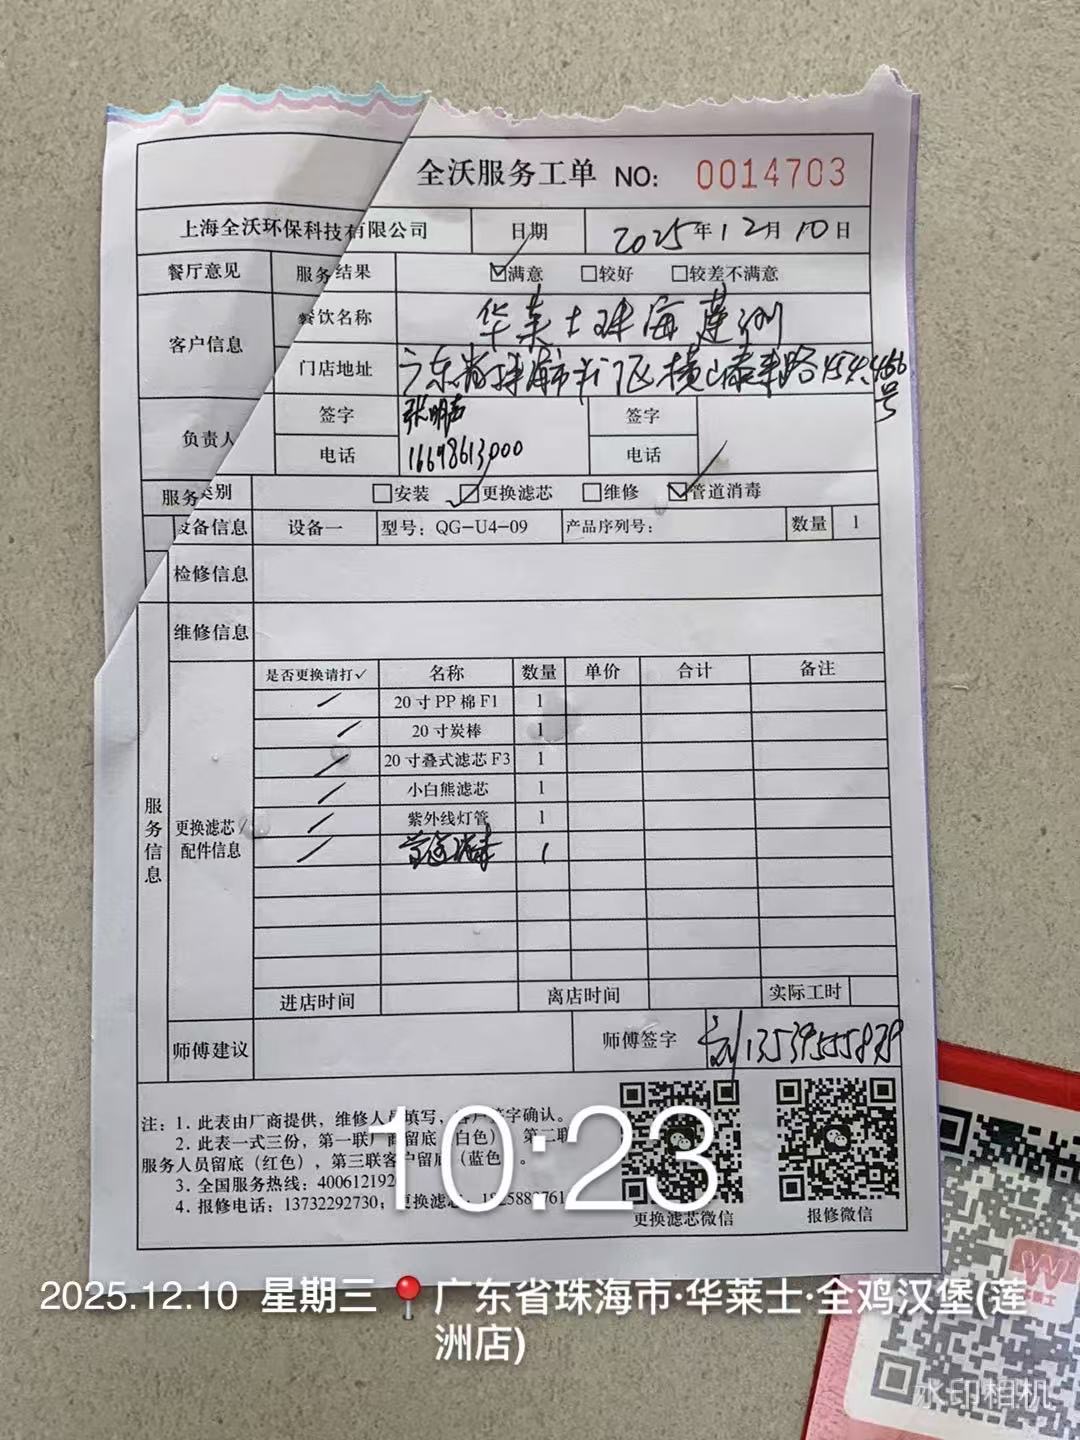 全沃服务工单 NO: 0014703
上海全沃环保科技有限公司 日期 2025年12月10日
餐厅意见 服务结果 ☑满意 □较好 □较差不满意
客户信息 餐饮名称 华莱士珠海莲洲
门店地址 广东省珠海市斗门区横山泰来路454、456号
负责人 签字 签字
电话 16698613000 电话
服务类别 □安装 ☑更换滤芯 □维修 ☑管道消毒
设备信息 设备一 型号: QG-U4-09 产品序列号: 数量 1
检修信息
维修信息
服务信息
更换滤芯/配件信息
是否更换请打✓ 名称 数量 单价 合计 备注
20寸PP棉F1 1
20寸炭棒 1
20寸叠式滤芯F3 1
小白熊滤芯 1
紫外线灯管 1
管道消毒 1
进店时间 离店时间 实际工时
师傅建议 师傅签字
注: 1. 此表由厂商提供, 维修人员填写, 客户签字确认。
2. 此表一式三份, 第一联厂商留底(白色) 第二联
服务人员留底(红色), 第三联客户留底(蓝色)。
3. 全国服务热线: 400612192
4. 报修电话: 13732292730; 更换滤芯
更换滤芯微信 报修微信
10:23
2025.12.10 星期三 广东省珠海市·华莱士·全鸡汉堡(莲
洲店)
水印相机